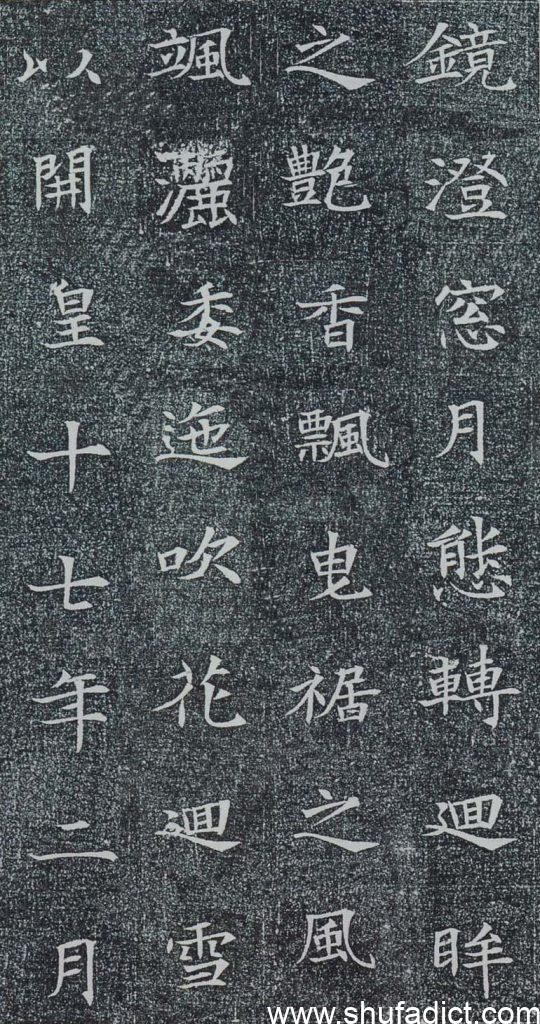 鏡澄窓月態轉迴眸
之艶香飄曳裾之風
颯灑委迤吹花迴雪
以開皇十七年二月
www.shufadict.com